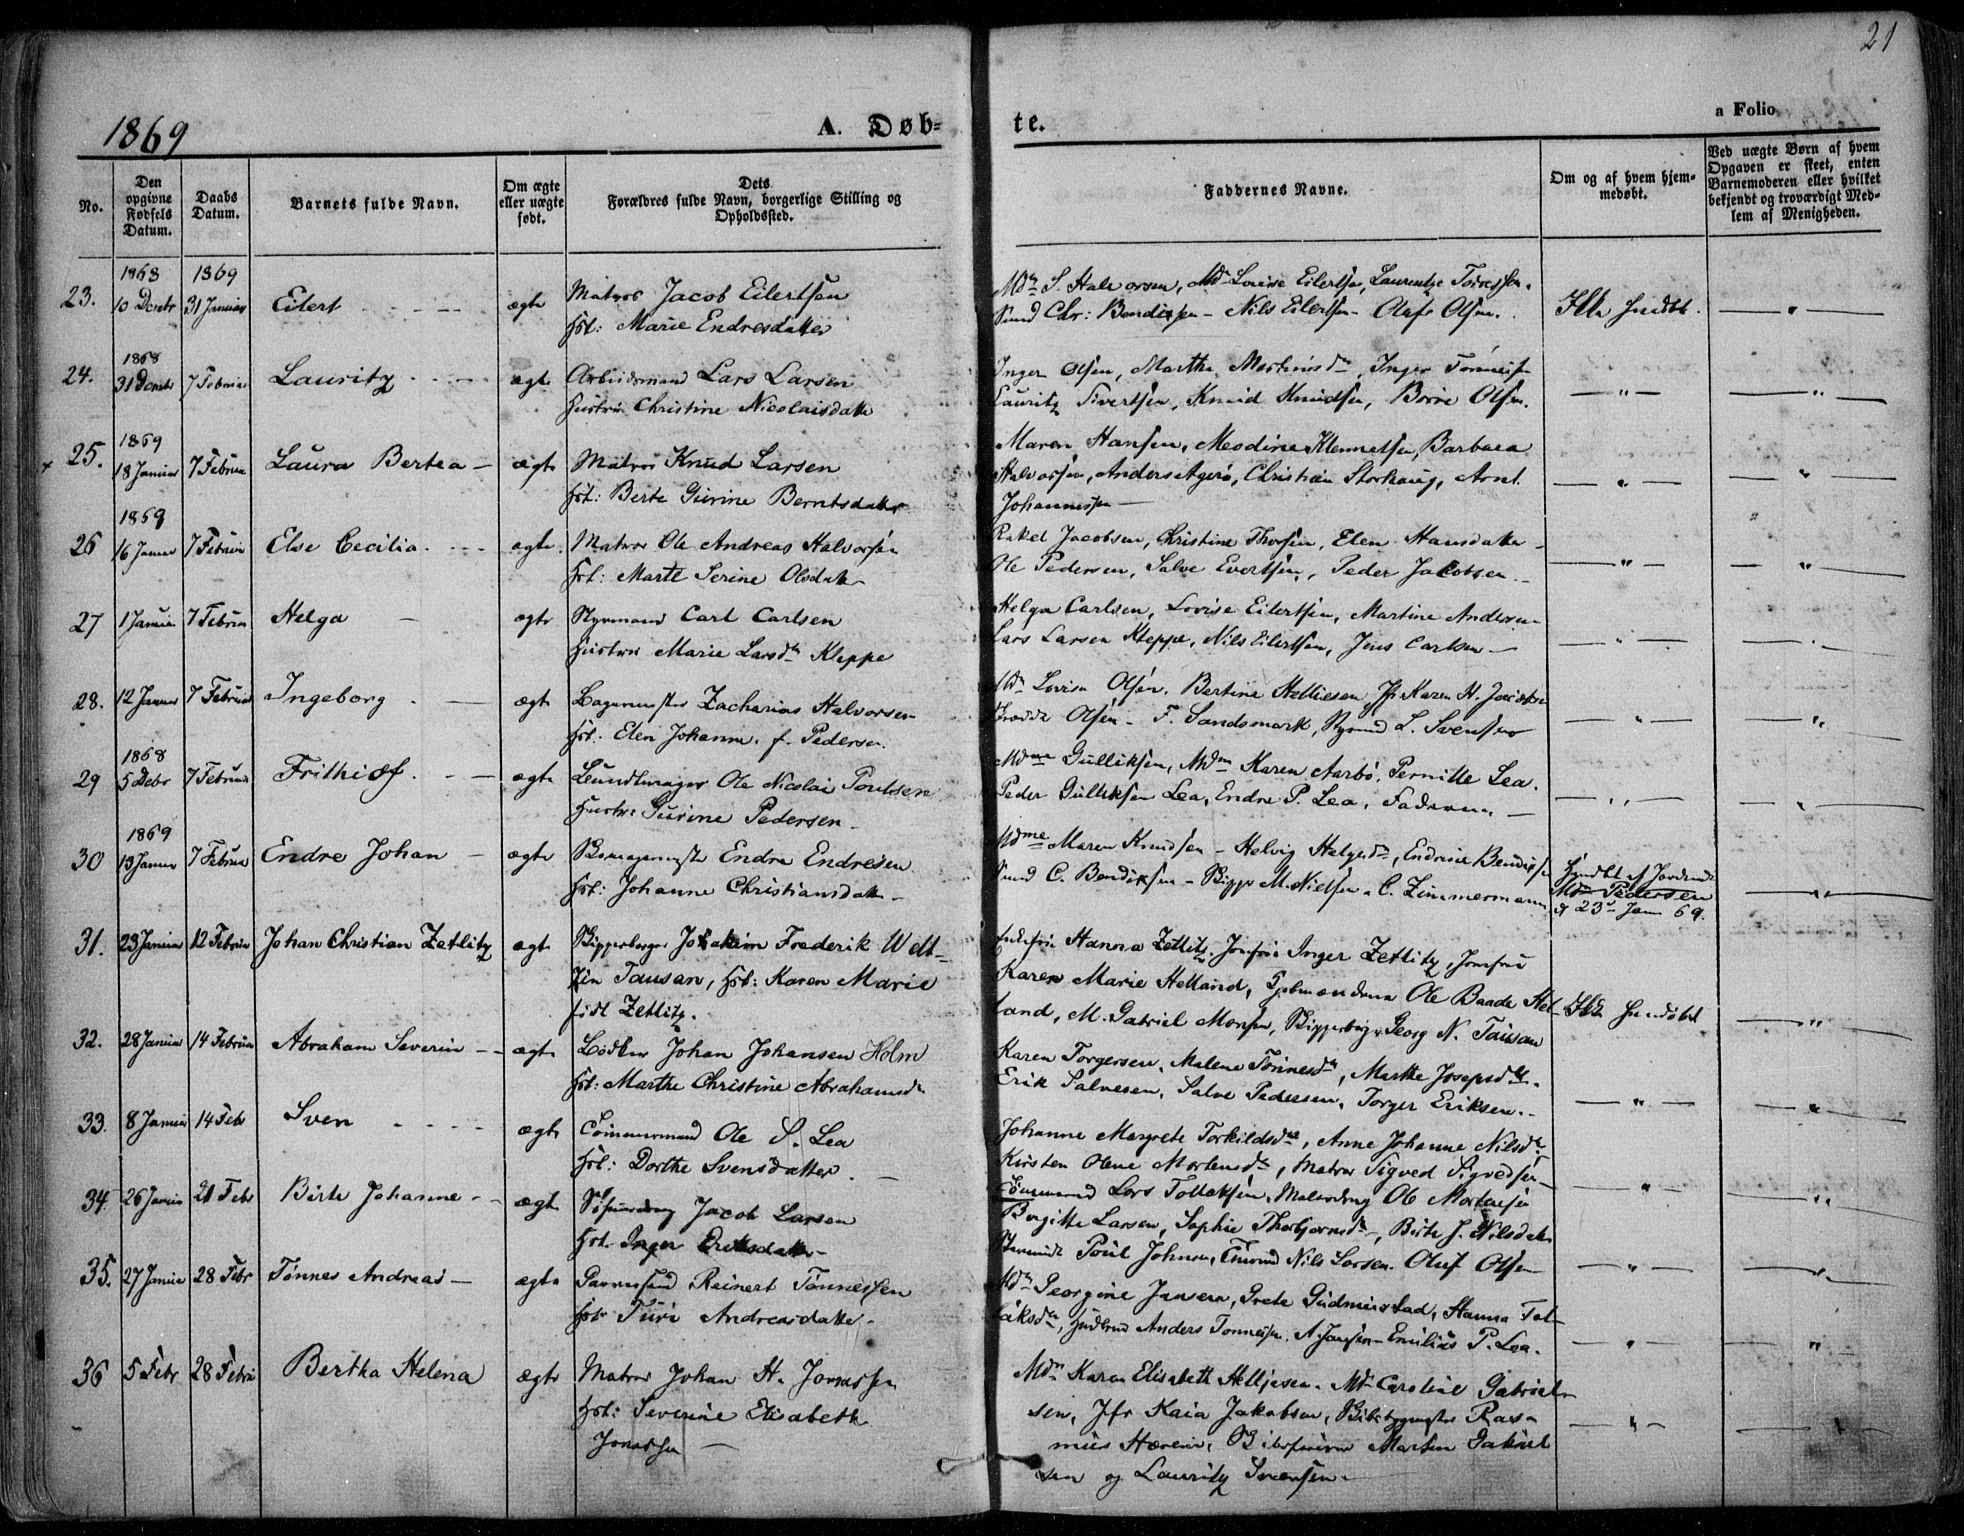 21
1869
A. Døb-
te.
a Folio
No.
Den opgivne Fødsels Datum.
Daabs Datum.
Barnets fulde Navn.
Om ægte eller uægte født.
Dets Forældres fulde Navn, borgerlige Stilling og Opholdssted.
Faddernes Navne.
Om og af hvem hjem-medøbt.
Ved uægte Børn af hvem Opgaven er skeet, enten Barnemoderen eller hvilket bekjendt og troværdigt Med-lem af Menigheden.
23. 1868 10 Decbr 1869 31 Januar Eilert ægte Matros Jacob Eilertsen
Hst: Marie Endresdatter
Louise Eilertsen,
Chr: Bendixen - Nils Eilertsen - Oluf Olsen.
24. 1868 31 Decbr 7 Februar Lauritz ægte Arbeidsmand Lars Larsen
Hustru Christine Nicolaisdatter
Inger Olsen, Marthe
Lauritz Sivertsen, Knud Knudsen, Børre Olsen.
25. 1869 18 Januar 7 Februar Laura Bertea ægte Matros Knud Larsen
Hst: Berte Gurine Berntsdatter
Maren Hansen, Barbara
Halvorsen, Christian Storhaug, Arnt
Johannessen
26 1869 16 Januar 7 Februar Else Cecilia ægte Matros Ole Andreas Halvorsen
Hst: Marte Serine Olsdatter
Rakel Jacobsen, Christine Thorsen, Elen Hansdatter
Ole Pedersen, Salve Evertsen, Peder Jacobsen.
27 1 Januar 7 Februar Helga ægte Styrmand Carl Carlsen
Hustru Marie Larsdtr Kleppe
Helga Carlsen, Lovise Eilertsen, Martine Andersen
Lars Larsen Kleppe, Nils Eilertsen, Jens Carlsen
28. 12 Januar 7 Februar Ingeborg ægte Bagermester Zacharias Halvorsen
Hst. Elen Johanne f. Pedersen.
Lovise Olsen, Bertine Helliesen, Jfr Karen H.
Olsen - F. Sandsmark, Styrmd L. Svensen
29 1868 5 Decbr 7 Februar Frithiof ægte Buntmager Ole Nicolai Poulsen
Hustru Gurine Pedersen
Mdme Gulliksen, Mdm Karen Aarbø, Pernille Lea.
Peder Gulliksen Lea, Endre P. Lea, Faderen.
30 1869 13 Januar 7 Februar Endre Johan ægte Endre Endresen
Hst: Johanne Christiansdatter
Mdme Maren Knudsen - Helvig Endrine Bendixsen
C. Bendixsen - Skipper M. Nielsen - C. Zimmermann
Hjmdbt af Jordemd:
Mdm Pedersen
d 23de Jan 69.
31. 23 Januar 12 Februar Johan Christian Zetlitz ægte Skipperborger Joakim Frederik Welt-
zin Tausan, Hst: Karen Marie
født Zetlitz.
Hanna Zetlitz, Jomfru Inger Zetlitz, Jomfru
Karen Marie Helland, Ole Baade Hel-
land, M. Gabriel Monsen, Skipperborger Georg N. Tausan
32. 28 Januar 14 Februar Abraham Severin ægte Bødker Johan Johansen Holm
Hst: Marthe Christine Abrahamsdr
Karen Torgersen, Malene Tønnesdtr, Marthe Josepsdtr.
Erik Salvesen, Salve Pedersen, Torger Eriksen.
33. 8 Januar 14 Febr Sven ægte Tømmermand Ole S. Lea
Hst: Dorthe Svensdatter
Johanne Margrete Torkildsdtr, Anne Johanne Nilsdtr
Kirsten Olene Mortensdtr, Matros Sigved Sigvedsen
Tømmermand Lars Tollaksen, Ole Mortensen
34. 26 Januar 21 Febr Birte Johanne ægte Jacob Larsen
Hst. Inger Eriksdatter
Birgitte Larsen, Sophie Thorbjørnsdtr, Birte J. Nilsdatter
Poul Johnsen, Nils Larsen. Oluf Olsen
35. 27 Januar 28 Febr Tønnes Andreas ægte Reinert Tønnessen
Hst Turi Andreasdatter
Mdm Georgine Jansen, Grete Gudmestad, Hanna Tol-
laksdtr, Anders Tønnesen, A. Jansen - Emilius P. Lea.
36 5 Febr 28 Febr Bertha Helena ægte Matros Johan H. Jonassen
Hst: Severine Elisabeth
Jonassen
Mdm Karen Elisabeth Helljesen. Mdm Caroline Gabriel-
sen, Jfr Kaia Jakobsen, Ras-
mus Martin Gabriel
sen og Lauritz Svensen.